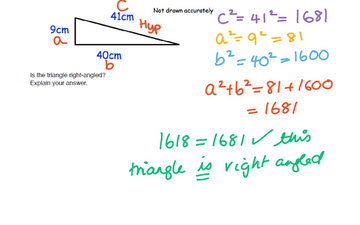 C
41cm
Hyp
Not drawn accurately
9cm
a
40cm
b
Is the triangle right-angled?
Explain your answer.
c² = 41² = 1681
a² = 9² = 81
b² = 40² = 1600
a² + b² = 81 + 1600
= 1681
1618 = 1681 ✓ this
triangle is right angled